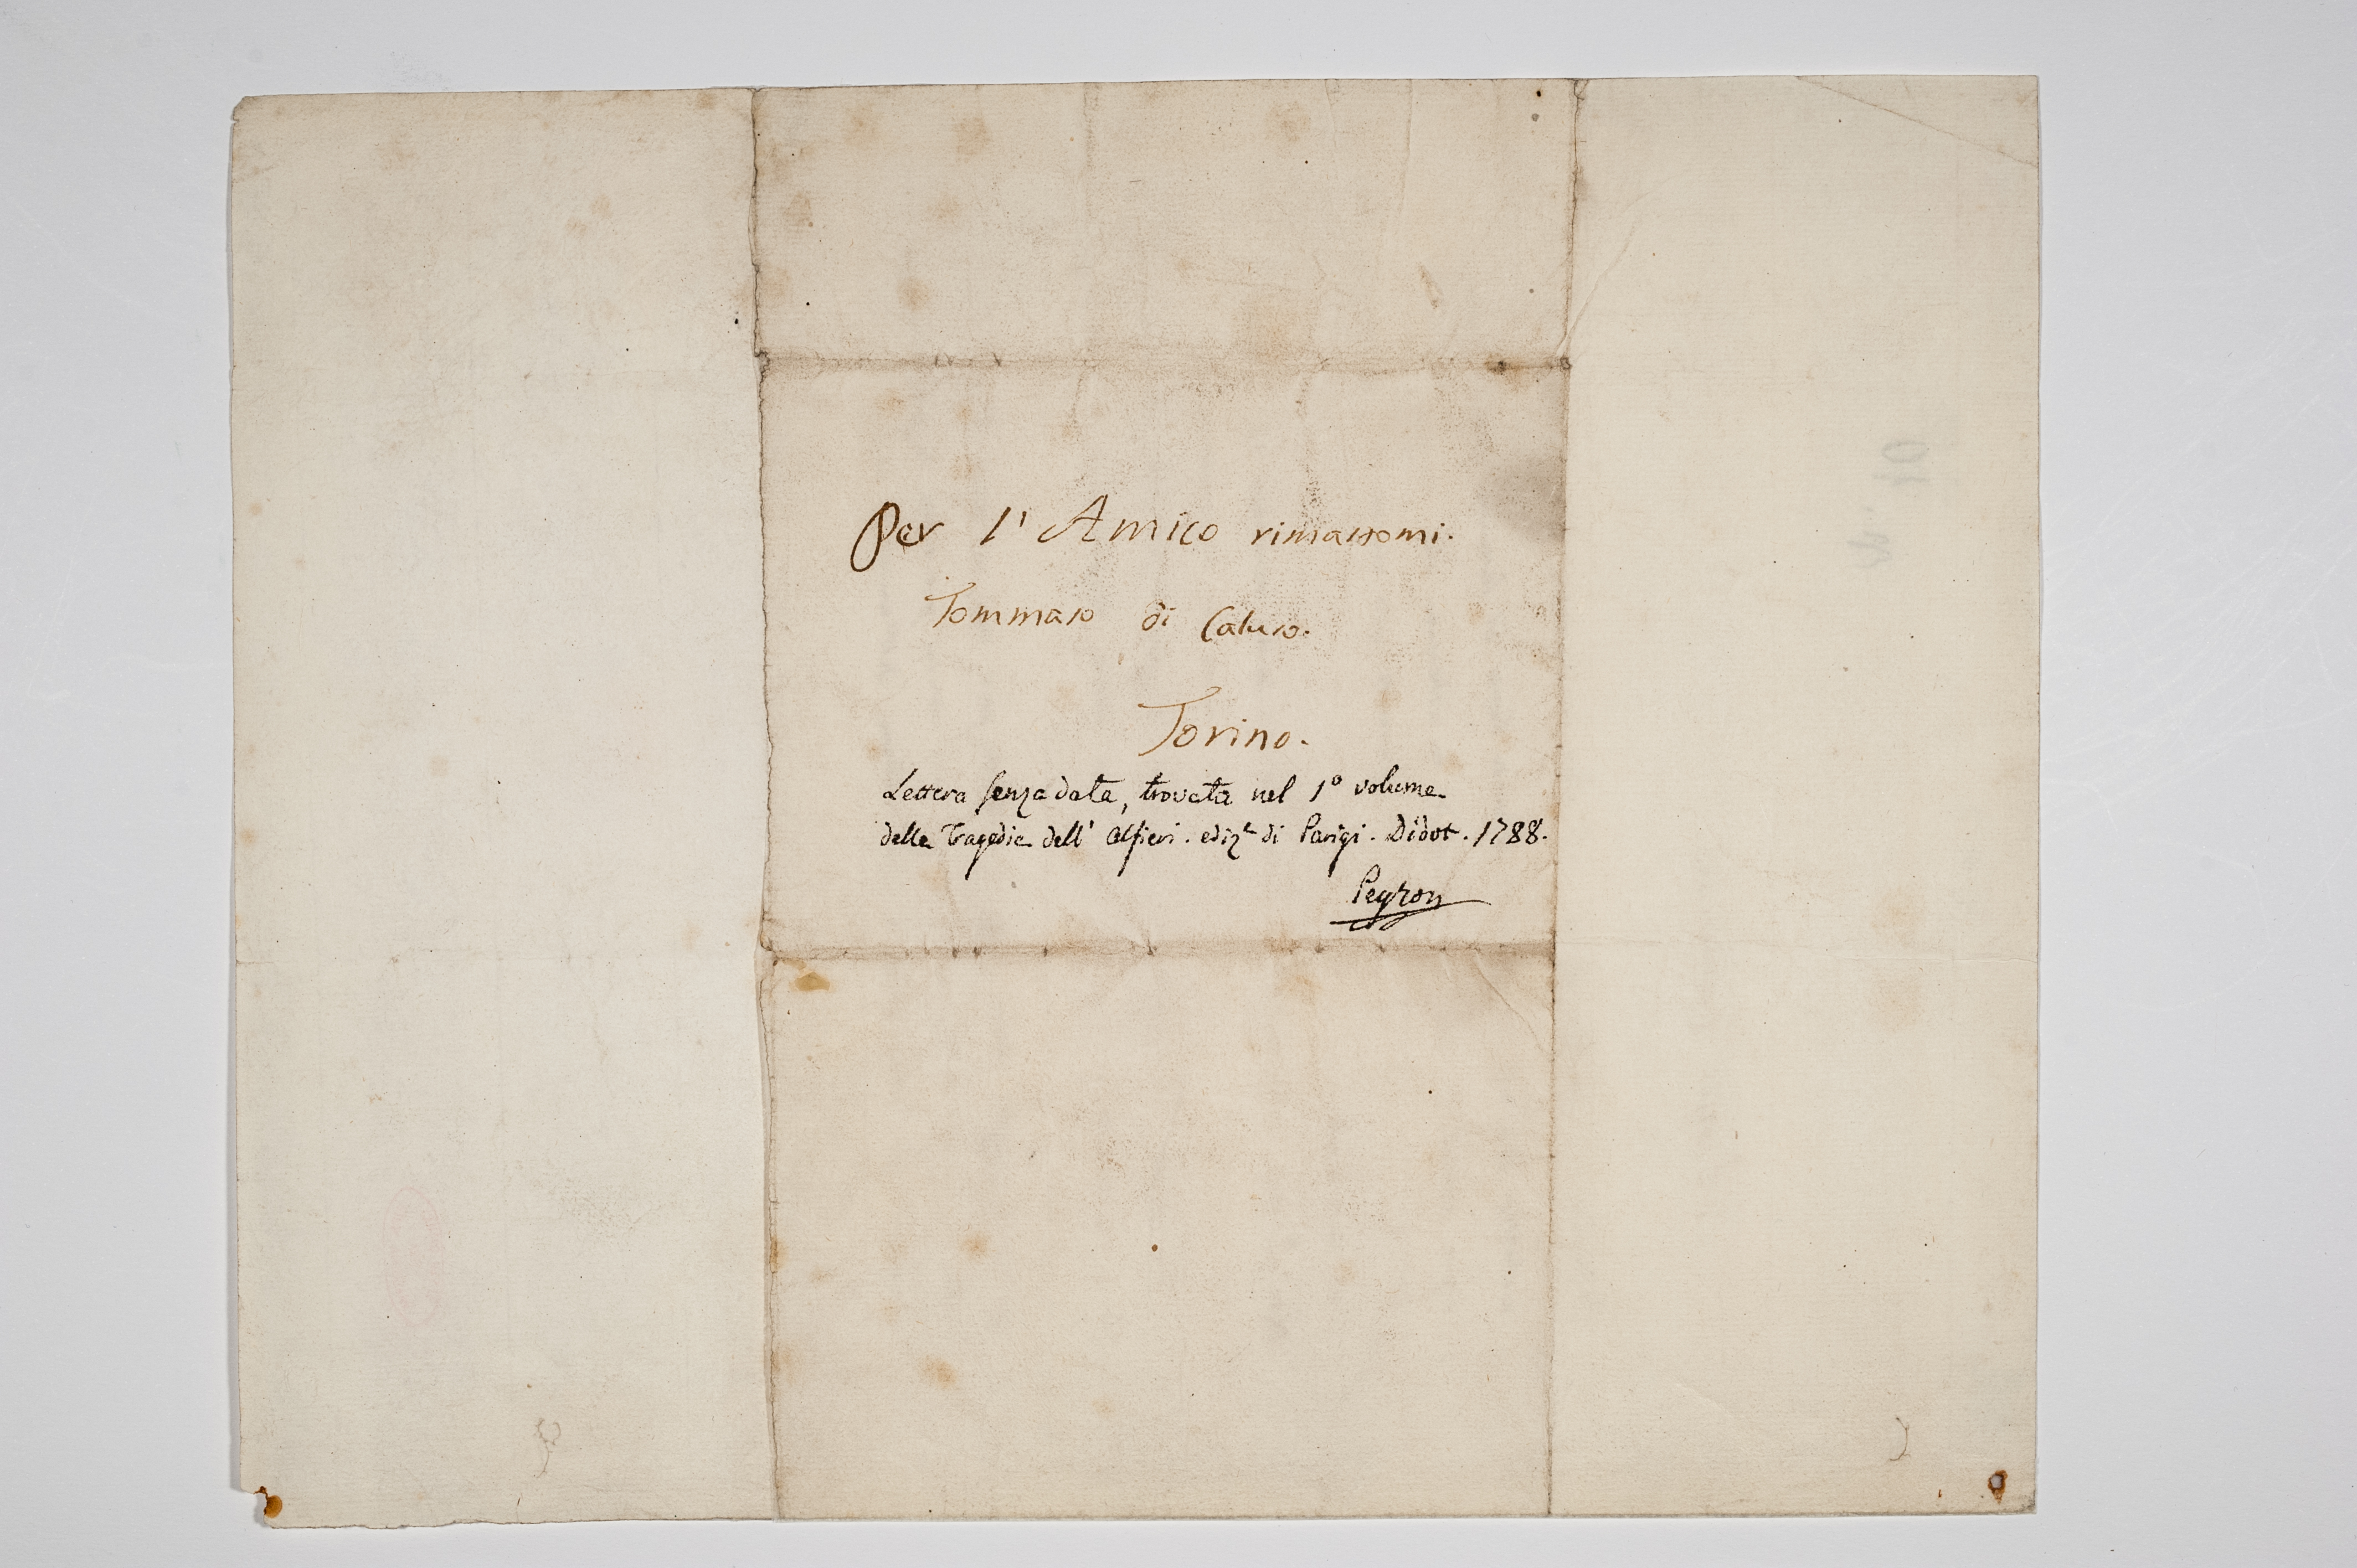 Per l'Amico rimassomi.
Tommaso di Caluso.
Torino.
Lettera senza data, trovata nel 1º volume
delle Tragedie dell' Alfieri. ediz.e di Parigi. Didot. 1788.
Peyron